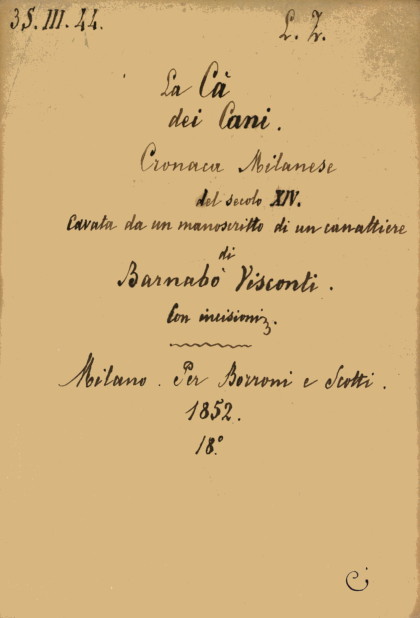 35. III. 44.
L. Z.
La Cà
dei Cani.
Cronaca Milanese
del secolo XIV.
Cavata da un manoscritto di un canattiere
di
Barnabò Visconti.
Con incisioni.
Milano. Per Borroni e Scotti.
1852.
18°